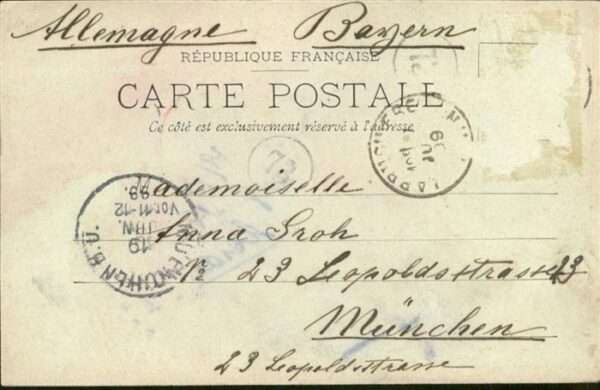 Allemagne Bayern
RÉPUBLIQUE FRANÇAISE
CARTE POSTALE
Ce côté est exclusivement réservé à l'adresse
Mademoiselle
Anna Groh
23 Leopoldsstrasse 23
München
23 Leopoldstrasse
MUENCHEN B.U.
19
JAN.
Vor. 11-12
99.